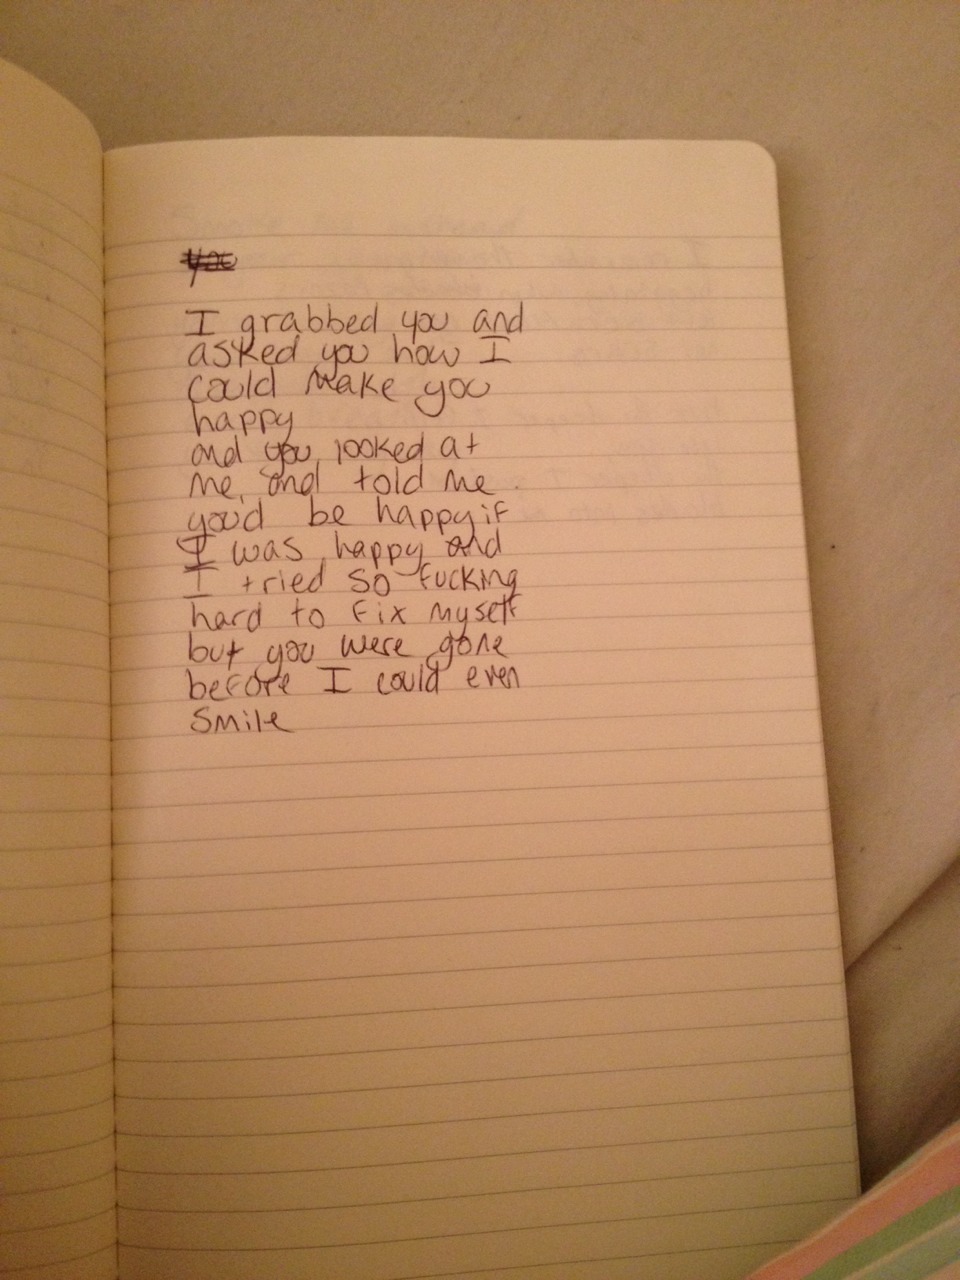 I grabbed you and
asked you how I
could make you
happy
and you looked at
me, and told me
you'd be happy if
I was happy and
I tried so fucking
hard to fix myself
but you were gone
before I could even
smile